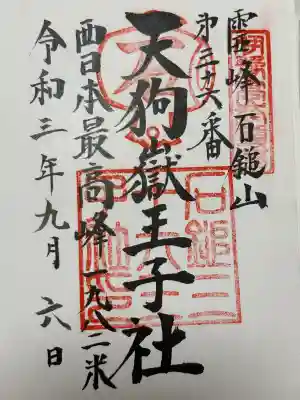 霊峰石鎚山
第三十六番
天狗嶽王子社
西日本最高峰一九八二米
令和三年九月六日